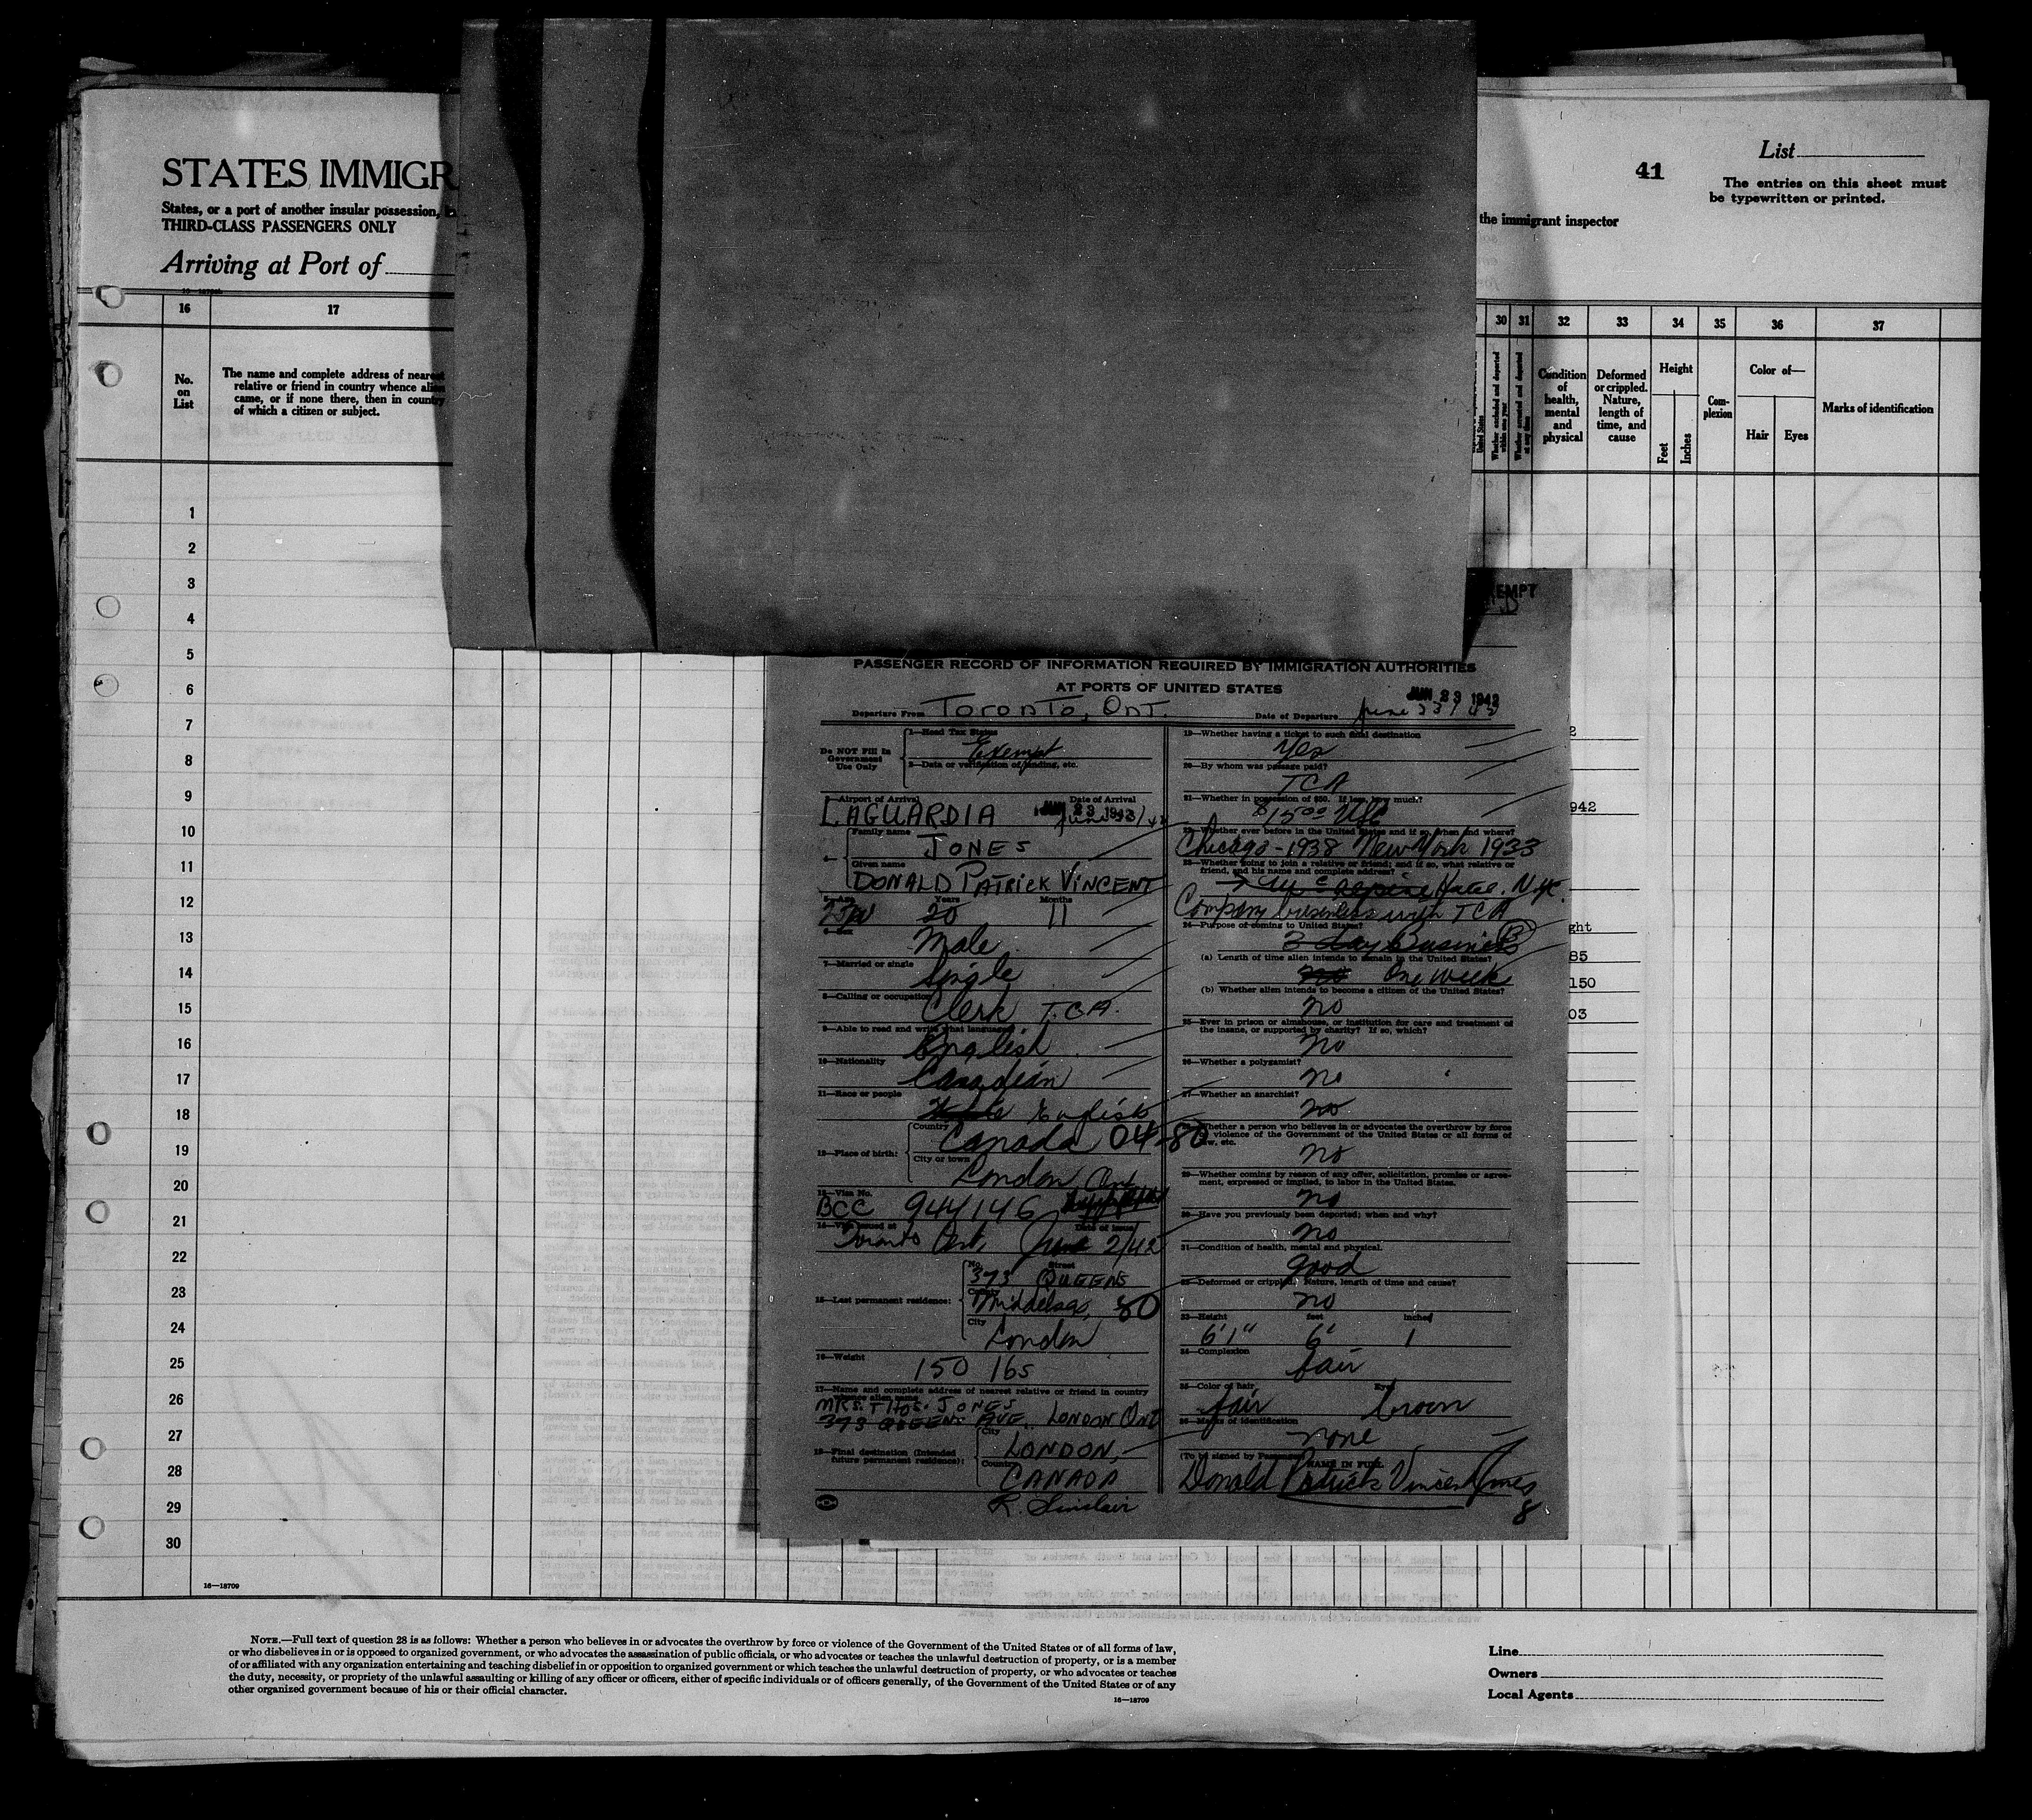 STATES IMMIGR
States, or a port of another insular possession,
THIRD-CLASS PASSENGERS ONLY
Arriving at Port of
41
List
The entries on this sheet must
be typewritten or printed.
the immigrant inspector
16
17
30
31
32
33
34
35
36
37
No.
on
List
The name and complete address of nearest
relative or friend in country whence alien
came, or if none there, then in country
of which a citizen or subject.
United States
Whether excluded and deported
within one year
Whether arrested and deported
at any time
Condition
of
health,
mental
and
physical
Deformed
or crippled.
Nature,
length of
time, and
cause
Height
Feet
Inches
Com-
plexion
Color of—
Hair
Eyes
Marks of identification
1
2
3
4
5
6
7
8
9
10
11
12
13
14
15
16
17
18
19
20
21
22
23
24
25
26
27
28
29
30
16—18709
EMPT
PASSENGER RECORD OF INFORMATION REQUIRED BY IMMIGRATION AUTHORITIES
AT PORTS OF UNITED STATES
JUN 23 1942
Departure From TORONTO, ONT.
Date of Departure June 23/42
Do NOT Fill In
Government
Use Only
1—Head Tax Status
Exempt
2—Data or verification of landing, etc.
3—Airport of Arrival
Date of Arrival
LAGUARDIA
JUN 23 1942
June 23/42
4—
Family name
JONES
Given name
DONALD PATRICK VINCENT
5—Age
Years
Months
20
11
6—Sex
Male
7—Married or single
Single
8—Calling or occupation
Clerk T.C.A.
9—Able to read and write what language
English
10—Nationality
Canadian
11—Race or people
English
12—Place of birth:
Country
Canada 04-80
City or town
London Ont
13—Visa No.
BCC 944146
14—Visa issued at
Date of issue
Toronto Ont, June 2/42
15—Last permanent residence:
No.
Street
373 QUEENS
Middelsex, 80
City
London
16—Weight
150 165
17—Name and complete address of nearest relative or friend in country
whence alien came
MRS. THOS. JONES
373 QUEENS AVE. LONDON ONT
18—Final destination (Intended
future permanent residence):
City
LONDON,
Country
CANADA
R. Sinclair
19—Whether having a ticket to such final destination
Yes
20—By whom was passage paid?
TCA
21—Whether in possession of $50. If less, how much?
$15.00 US
22—Whether ever before in the United States and if so, when and where?
Chicago-1938 New York 1933
23—Whether going to join a relative or friend; and if so, what relative or
friend, and his name and complete address?
Hotel N.Y.C.
Company business with TCA
24—Purpose of coming to United States?
3 day Business
(a) Length of time alien intends to remain in the United States?
One week
(b) Whether alien intends to become a citizen of the United States?
no
25—Ever in prison or almshouse, or institution for care and treatment of
the insane, or supported by charity? If so, which?
no
26—Whether a polygamist?
no
27—Whether an anarchist?
no
Whether a person who believes in or advocates the overthrow by force
violence of the Government of the United States or all forms of
law, etc.
no
29—Whether coming by reason of any offer, solicitation, promise or agree-
ment, expressed or implied, to labor in the United States.
no
30—Have you previously been deported; when and why?
no
31—Condition of health, mental and physical.
good
32—Deformed or crippled. Nature, length of time and cause?
no
33—Height
feet
inches
6'1" 6' 1
34—Complexion
fair
35—Color of hair
Eyes
fair
brown
36—Marks of identification
none
(To be signed by Passenger)
NAME IN FULL
Donald Patrick Vincent Jones
8
2
942
ght
85
150
03
NOTE.—Full text of question 28 is as follows: Whether a person who believes in or advocates the overthrow by force or violence of the Government of the United States or of all forms of law,
or who disbelieves in or is opposed to organized government, or who advocates the assassination of public officials, or who advocates or teaches the unlawful destruction of property, or is a member
of or affiliated with any organization entertaining and teaching disbelief in or opposition to organized government or which teaches the unlawful destruction of property, or who advocates or teaches
the duty, necessity, or propriety of the unlawful assaulting or killing of any officer or officers, either of specific individuals or of officers generally, of the Government of the United States or of any
other organized government because of his or their official character.
16—18709
Line
Owners
Local Agents